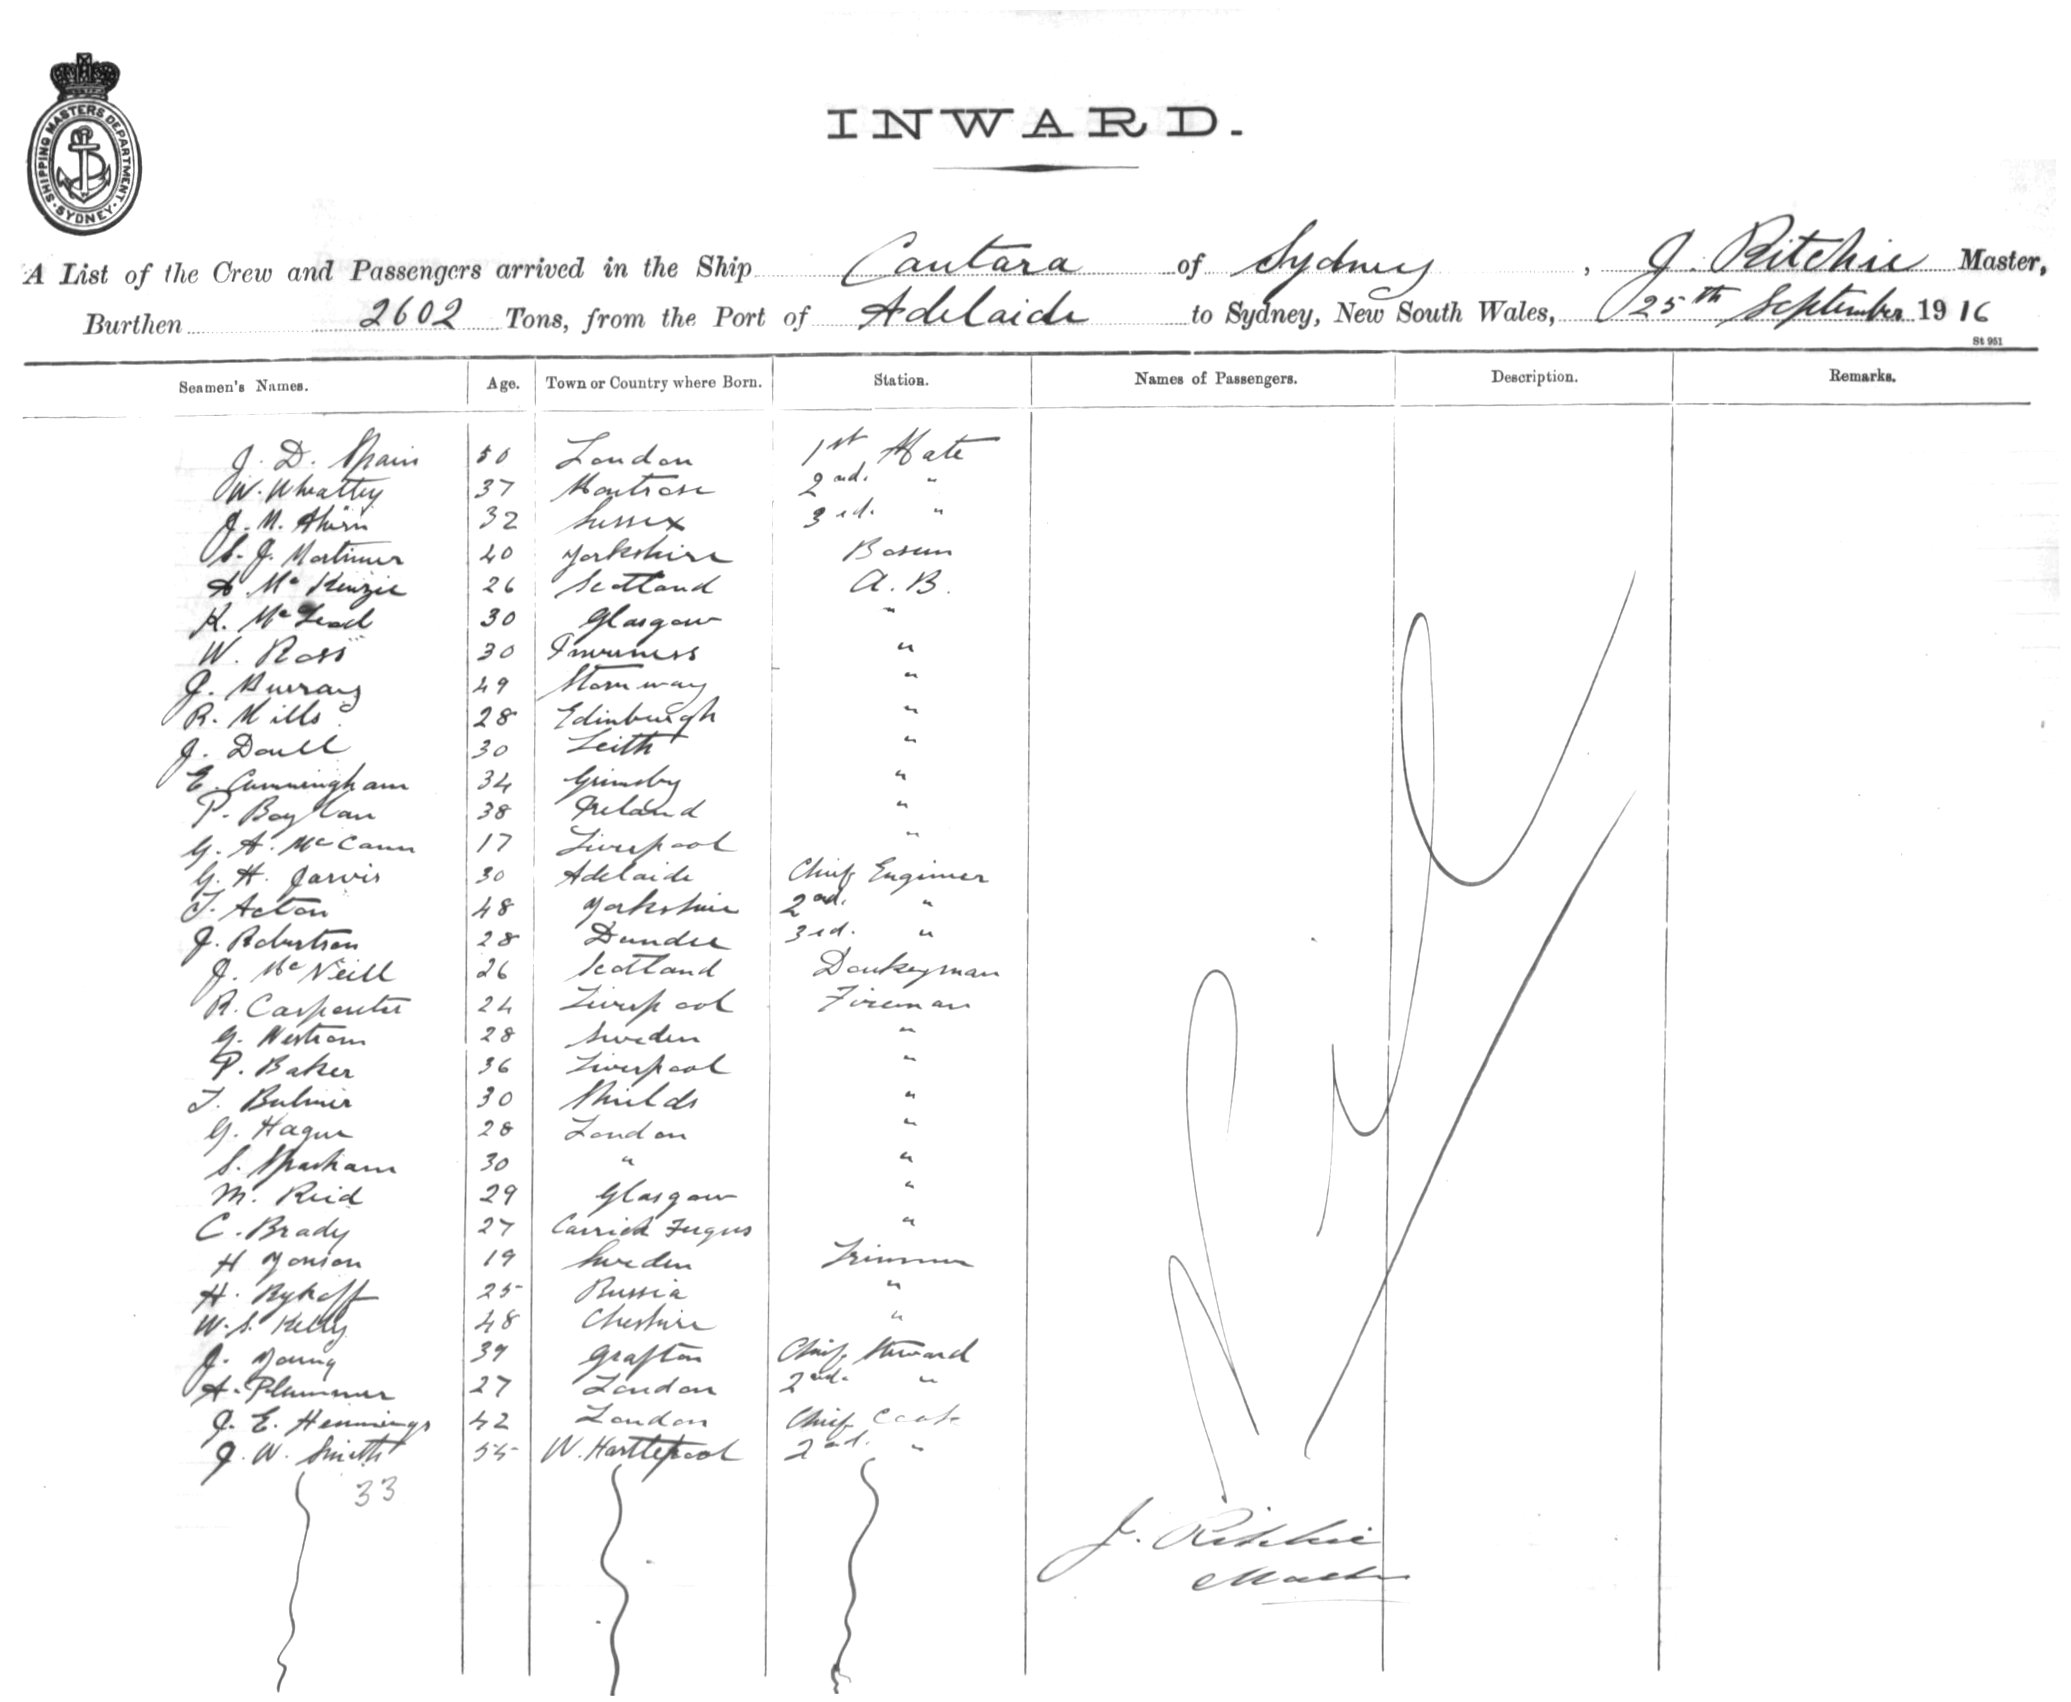 SHIPPING MASTERS DEPARTMENT. SYDNEY.
INWARD.
A List of the Crew and Passengers arrived in the Ship Cantara of Sydney, J. Ritchie Master,
Burthen 2602 Tons, from the Port of Adelaide to Sydney, New South Wales, 25th September 1916
St 951
Seamen's Names. Age. Town or Country where Born. Station. Names of Passengers. Description. Remarks.
J. D. Spain 50 London 1st Mate
W. Wheatley 37 Montrose 2nd. "
J. M. 32 Sussex 3rd. "
S. J. Mortimer 40 Yorkshire Bosun
A McKenzie 26 Scotland A. B.
K. McLeod 30 Glasgow "
W. Ross 30 Inverness "
J. Murray 49 Stornway "
R. Mills 28 Edinburgh "
J. Doull 30 Leith "
E. Cunningham 34 Grimsby "
P. Boylan 38 Ireland "
G. A. McCann 17 Liverpool "
G. H. Jarvis 30 Adelaide Chief Engineer
T. Acton 48 Yorkshire 2nd. "
J. Robertson 28 Dundee 3rd. "
J. McNeill 26 Scotland Donkeyman
R. Carpenter 24 Liverpool Fireman
G. Westrom 28 Sweden "
P. Baker 36 Liverpool "
T. Bulmer 30 Shields "
G. Hague 28 London "
S. Sparham 30 " "
M. Reid 29 Glasgow "
C. Brady 27 Carrick Fergus "
H Yonson 19 Sweden Trimmer
H. Rykoff 25 Russia "
W. S. Kelly 48 Cheshire "
J. Young 39 Grafton Chief Steward
A. Plummer 27 London 2nd. "
J. E. Hennings 42 London Chief Cook
J. W. Smith 55 W. Hartlepool 2nd. "
33
Nil
J. Ritchie
Master